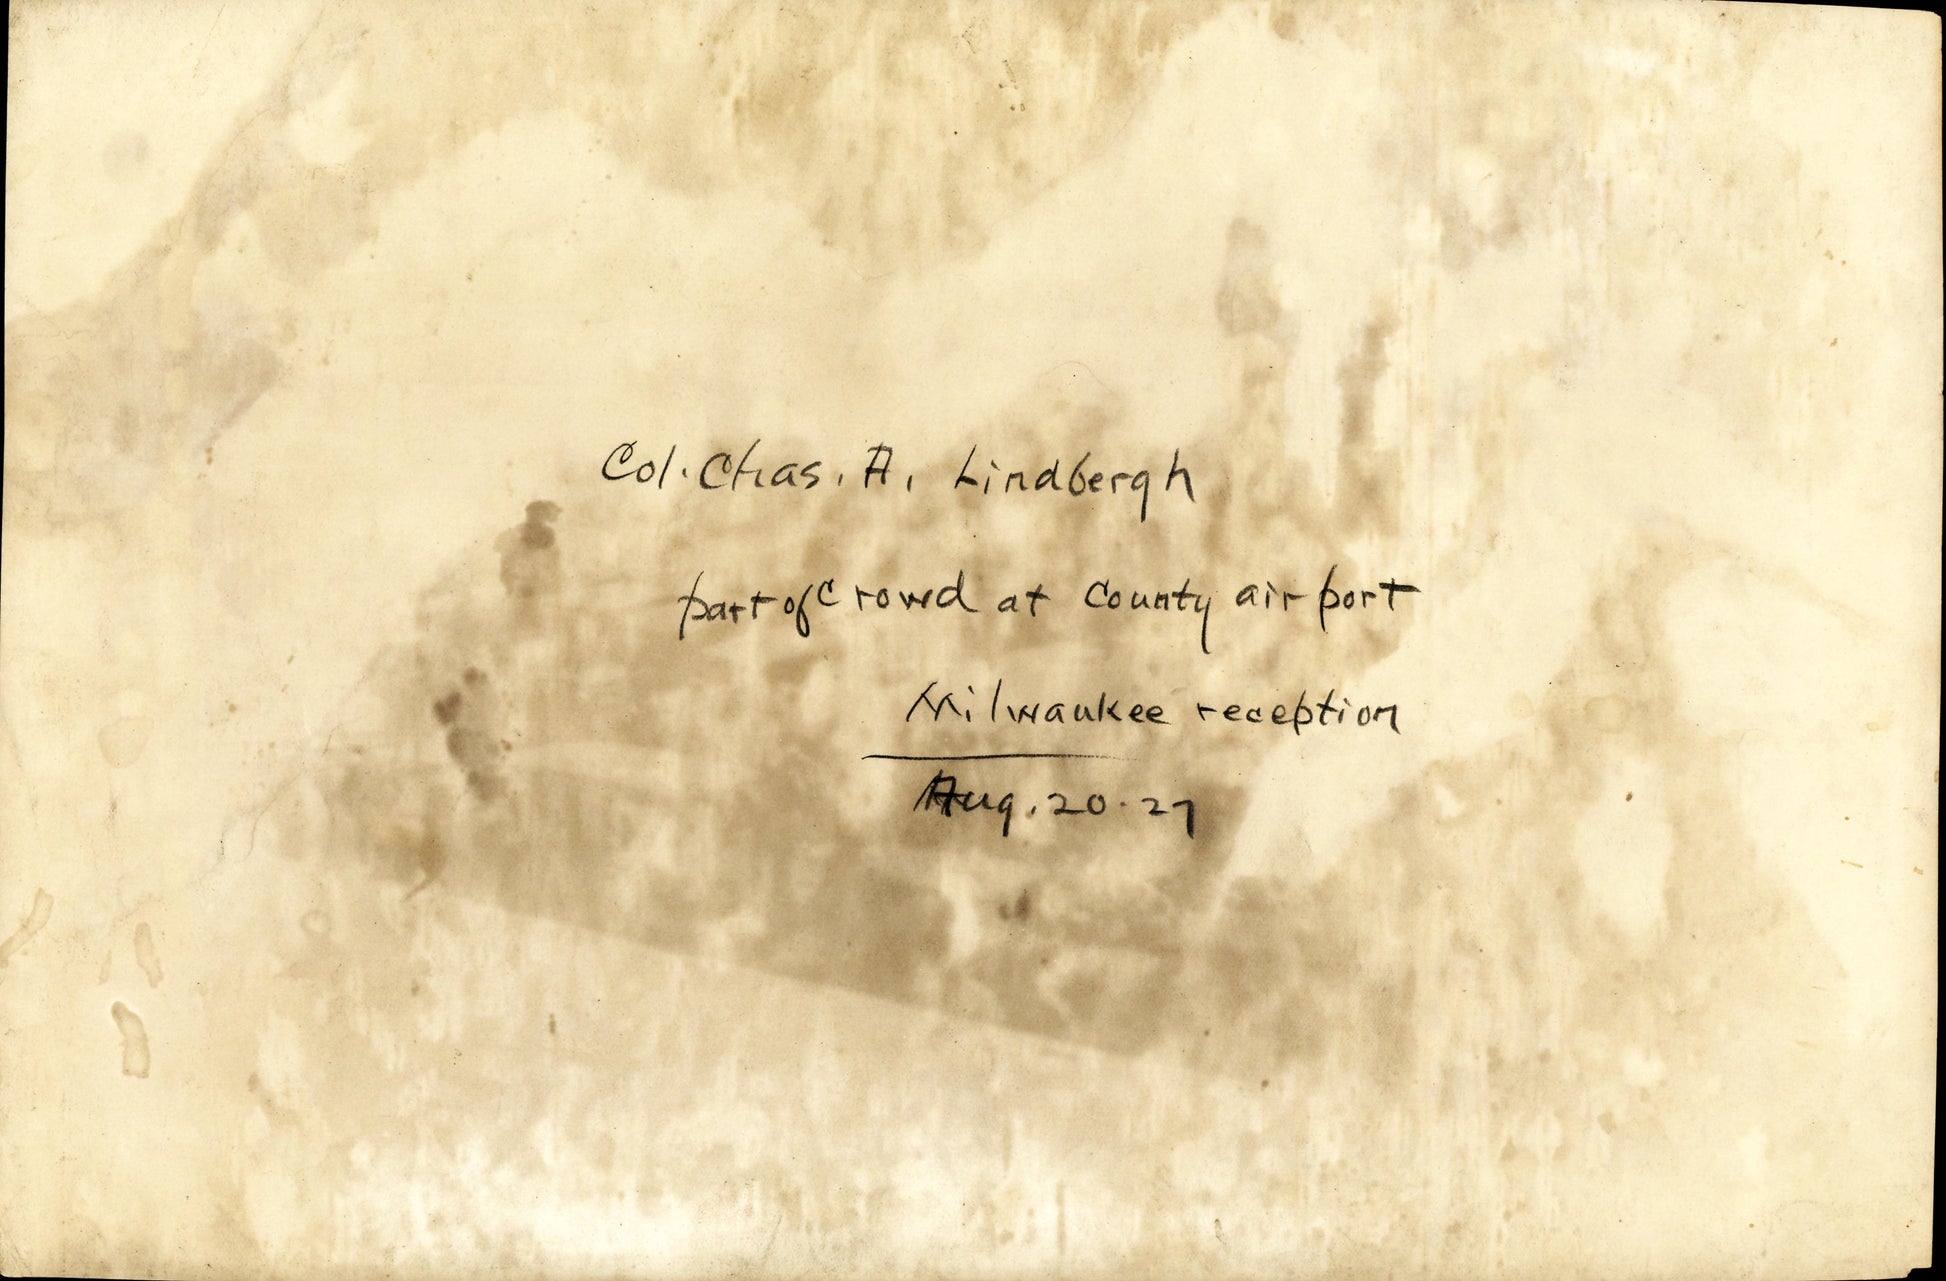 Col. Chas. A. Lindbergh
part of Crowd at County airport
Milwaukee reception
Aug. 20 - 27